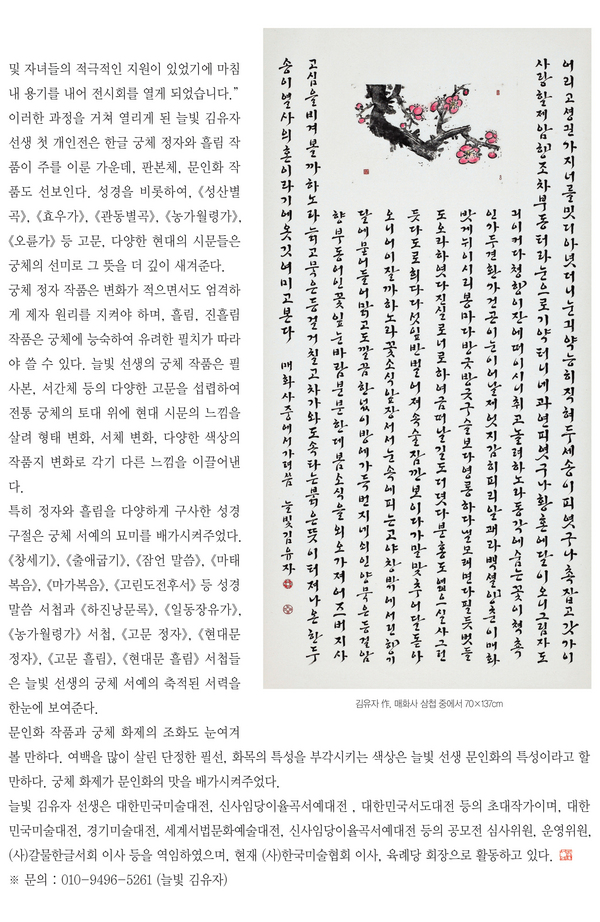 및 자녀들의 적극적인 지원이 있었기에 마침
내 용기를 내어 전시회를 열게 되었습니다.”
이러한 과정을 거쳐 열리게 된 늘빛 김유자
선생 첫 개인전은 한글 궁체 정자와 흘림 작
품이 주를 이룬 가운데, 판본체, 문인화 작
품도 선보인다. 성경을 비롯하여, 《성산별
곡》, 《효우가》, 《관동별곡》, 《농가월령가》,
《오륜가》 등 고문, 다양한 현대의 시문들은
궁체의 선미로 그 뜻을 더 깊이 새겨준다.
궁체 정자 작품은 변화가 적으면서도 엄격하
게 제자 원리를 지켜야 하며, 흘림, 진흘림
작품은 궁체에 능숙하여 유려한 필치가 따라
야 쓸 수 있다. 늘빛 선생의 궁체 작품은 필
사본, 서간체 등의 다양한 고문을 섭렵하여
전통 궁체의 토대 위에 현대 시문의 느낌을
살려 형태 변화, 서체 변화, 다양한 색상의
작품지 변화로 각기 다른 느낌을 이끌어낸
다.
특히 정자와 흘림을 다양하게 구사한 성경
구절은 궁체 서예의 묘미를 배가시켜주었다.
《창세기》, 《출애굽기》, 《잠언 말씀》, 《마태
복음》, 《마가복음》, 《고린도전후서》 등 성경
말씀 서첩과 《하진낭문록》, 《일동장유가》,
《농가월령가》 서첩, 《고문 정자》, 《현대문
정자》, 《고문 흘림》, 《현대문 흘림》 서첩들
은 늘빛 선생의 궁체 서예의 축적된 서력을
한눈에 보여준다.
문인화 작품과 궁체 화제의 조화도 눈여겨
볼 만하다. 여백을 많이 살린 단정한 필선, 화목의 특성을 부각시키는 색상은 늘빛 선생 문인화의 특성이라고 할
만하다. 궁체 화제가 문인화의 맛을 배가시켜주었다.
늘빛 김유자 선생은 대한민국미술대전, 신사임당이율곡서예대전 , 대한민국서도대전 등의 초대작가이며, 대한
민국미술대전, 경기미술대전, 세계서법문화예술대전, 신사임당이율곡서예대전 등의 공모전 심사위원, 운영위원,
(사)갈물한글서회 이사 등을 역임하였으며, 현재 (사)한국미술협회 이사, 육례당 회장으로 활동하고 있다.
※ 문의 : 010-9496-5261 (늘빛 김유자)
어리고 셩긘 가지 너를 밋디 아녓더니 눈 긔약 능히 직혀 두세 송이 피엿구나 촉 잡고 갓가이
사랑할 제 암향조차 부동터라 눈으로 기약터니 네 과연 피엿구나 황혼에 달이 오니 그림자도
긔이커다 청향이 잔에 떠 이시니 취코 놀려 하노라 동각에 숨은 꽃이 척촉
인가 두견화가 건곤이 눈이어늘 제 엇지 감히 피리 알괘라 백설양춘이 매화
밧게 뉘 이시리 봉마다 방긋방긋 구슬보다 영롱하다 널 모래면 다 필 듯 벗들
도 오라 하엿다 진실로 너로 하여금 떠날 길도 더뎟다 분홍도 실사 그런
듯 다 도로 희다 다섯 잎 반 벌어져 속술 잠깐 보이다가 달 돋아
오니 어이 잘까 하노라 꽃소식 앞장서서 눈 속에 피는 고야 창밖에 서린 향기
달에 묻어 들어 맑고도 깔끔한 넋이 방에 가득 번지네 쇠인 양 묵은 등걸 암
향부동 어인 꽃잎 눈바람 분분한데 봄소식을 외오 가져 어즈버 지사
고심을 비겨 볼까 하노라 늙고 묵은 등걸 거칠고 차가와도 속타는 붉은 뜻이 터져 나온 한두
송이 열사의 혼이라기에 옷깃 여미고 본다 매화사 중에서 가려 씀 늘빛 김유자
김유자 作, 매화사 삼첩 중에서 70×137cm